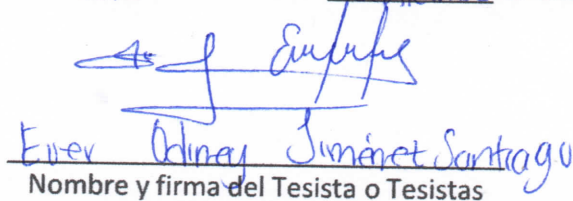 Ever Odiney Jiménez Santiago
Nombre y firma del Tesista o Tesistas